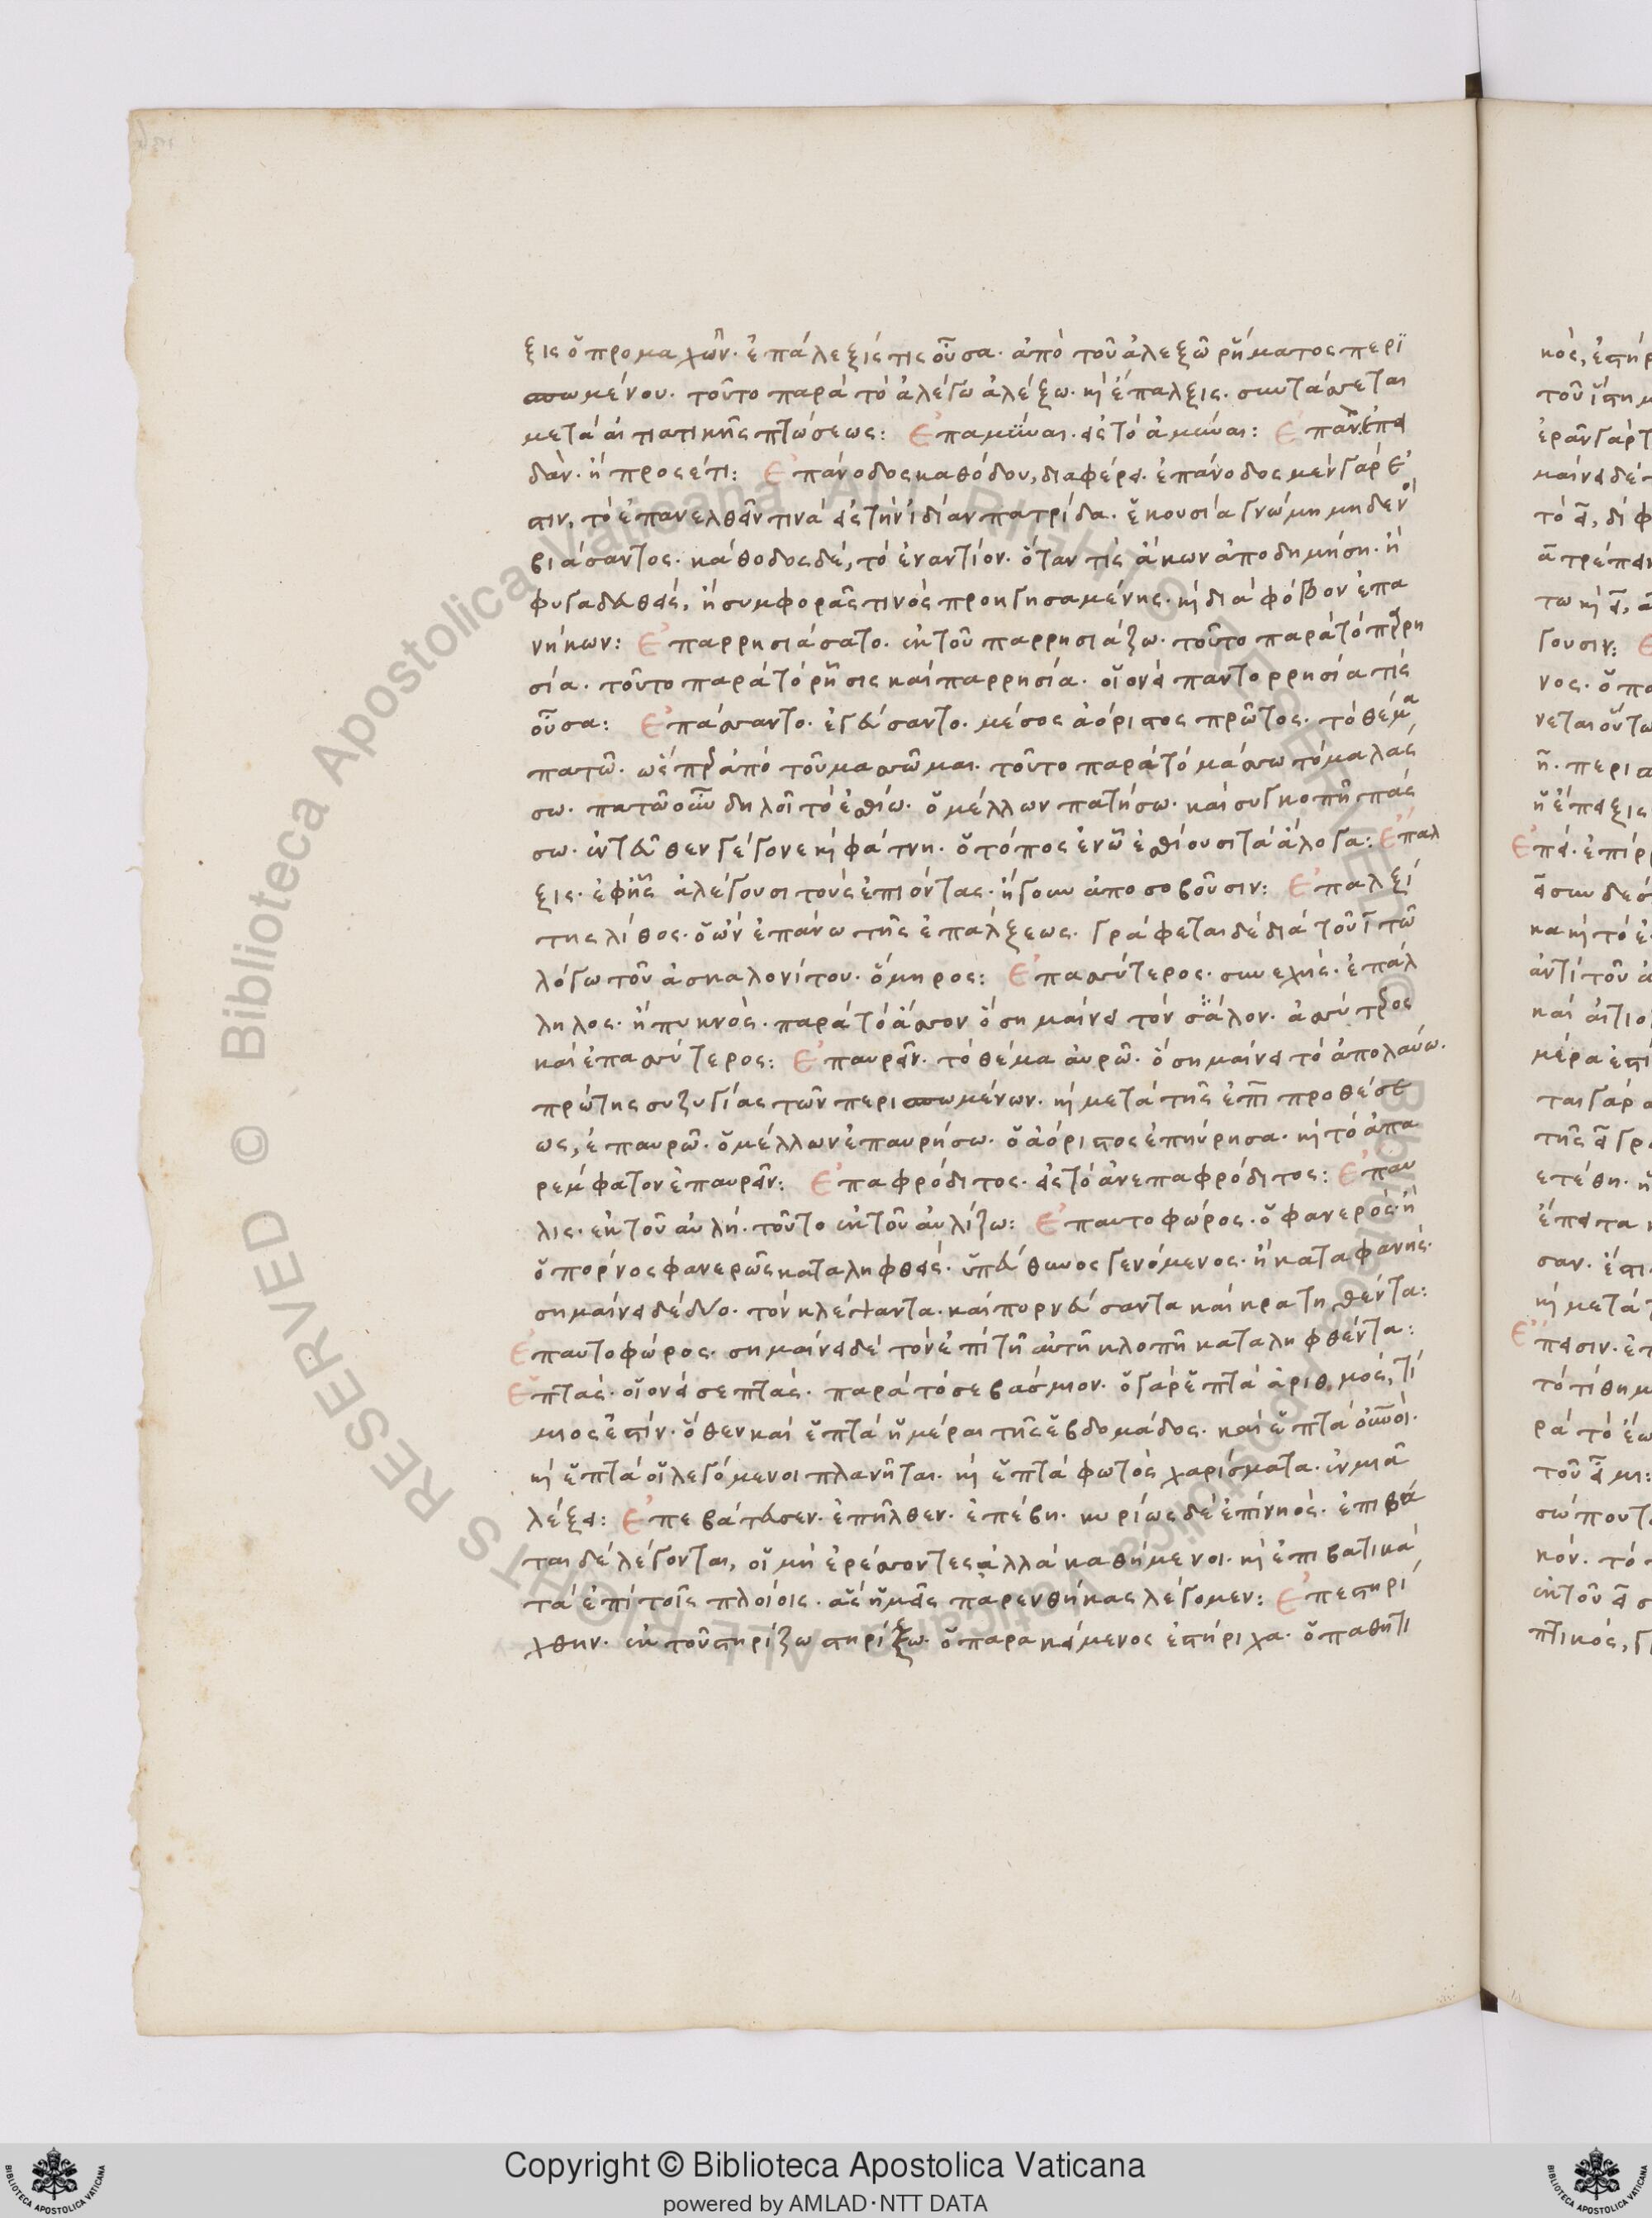 ξις ὁ προμαχῶν· ἐπάλεξίς τις οὖσα· ἀπὸ τοῦ ἀλεξῶ ῥήματος περι
σπωμένου· τοῦτο παρὰ τὸ ἀλέγω ἀλέξω· κὶ ἔπαλξις· συντάσσεται
μετὰ αἰτιατικῆς πτώσεως: Ἐπαμῦναι· εἰς τὸ ἀμῦναι: Ἐπὰν ἐπει
δὰν· ἢ προσέτι: Ἐπάνοδος καθόδου, διαφέρει· ἐπάνοδος μὲν γάρ ἐ
στιν, τὸ ἐπανελθεῖν τινὰ εἰς τὴν ἰδίαν πατρίδα· ἑκουσία γνώμη μηδενὸ
βιάσαντος· κάθοδος δέ, τὸ ἐναντίον· ὅταν τίς ἄκων ἀποδημήση· ἢ
φυγαδευθείς, ἢ συμφορᾶς τινὸς προηγησαμένης· κὶ διὰ φόβον ἐπα
νήκων: Ἐπαρρησιάσατο· ἐκ τοῦ παρρησιάζω· τοῦτο παρὰ τὸ παρρη
σία· τοῦτο παρὰ τὸ ῥῆσις καὶ παρρησία· οἱονεὶ παντορρησία τίς
οὖσα: Ἐπάσαντο· ἐγεύσαντο· μέσος ἀόριστος πρῶτος· τὸ θέμα
πατῶ· ὥσπερ ἀπὸ τοῦ μασῶμαι· τοῦτο παρὰ τὸ μάσσω τὸ μαλάς
σω· πατῶ οὖν δηλοῖ τὸ ἐσθίω· ὁ μέλλων πατήσω· καὶ συγκοπῆ πάς
σω· ἐντεῦθεν γέγονε κὶ φάτνη· ὁ τόπος ἐν ὧ ἐσθίουσι τὰ ἄλογα: Ἐπαλ
ξις· ἐφ ἧς ἀλέγουσι τοὺς ἐπιόντας· ἤγουν ἀποσοβοῦσιν: Ἐπαλξί
της λίθος· ὁ ὢν ἐπάνω τῆς ἐπάλξεως· γράφεται δὲ διὰ τοῦ ι τῶ
λόγω τοῦ ἀσκαλονίτου· ὅμηρος: Ἐπασσύτερος· συνεχής· ἐπάλ
ληλος· ἢ πυκνὸς· παρὰ τὸ ἆσσον ὃ σημαίνει τὸν σάλον· ἀσσύτερος
καὶ ἐπασσύτερος: Ἐπαυρεῖν· τὸ θέμα αὐρῶ· ὃ σημαίνει τὸ ἀπολαύω·
πρώτης συζυγίας τῶν περισπωμένων· κὶ μετὰ τῆς ἐπὶ προθέσε
ως, ἐπαυρῶ· ὁ μέλλων ἐπαυρήσω· ὁ ἀόριστος ἐπηύρησα· κὶ τὸ ἀπα
ρέμφατον ἐπαυρεῖν: Ἐπαφρόδιτος· εἰς τὸ ἀνεπαφρόδιτος: Ἐπαυ
λις· ἐκ τοῦ αὐλή· τοῦτο ἐκ τοῦ αὐλίζω: Ἐπαυτοφώρος· ὁ φανερός· ἢ
ὁ πόρνος φανερῶς καταληφθείς· ὑπεύθυνος γενόμενος· ἢ καταφανής·
σημαίνει δὲ δύο· τὸν κλέψαντα· καὶ πορνεύσαντα καὶ κρατηθέντα:
Ἐπαυτοφώρος· σημαίνει δὲ τὸν ἐπὶ τῆ αὐτῆ κλοπῆ καταληφθέντα:
Ἑπτάς· οἱονεὶ σεπτάς· παρὰ τὸ σεβάσμιον· ὁ γὰρ ἑπτὰ ἀριθμός, τί
μιος ἐστίν· ὅθεν καὶ ἑπτὰ ἡμέραι τῆς ἑβδομάδος· καὶ ἑπτὰ οὐνοί·
κὶ ἑπτὰ οἱ λεγόμενοι πλανῆται· κὶ ἑπτὰ φωτὸς χαρίσματα· ἐν μιᾶ
λέξει: Ἐπεβάτευσεν· ἐπῆλθεν· ἐπέβη· κυρίως δὲ ἐπὶ νηός· ἐπιβά
ται δὲ λέγονται, οἱ μὴ ἐρέσσοντες ἀλλὰ καθήμενοι· κὶ ἐπιβατικὰ
τὰ ἐπὶ τοῖς πλοίοις· ἃς ἡμεῖς παρενθήκας λέγομεν: Ἐπεστηρί
χθην· ἐκ τοῦ στηρίζω στηρίξω· ὁ παρακείμενος ἐστήριχα· ὁ παθητι
Copyright © Biblioteca Apostolica Vaticana
powered by AMLAD·NTT DATA